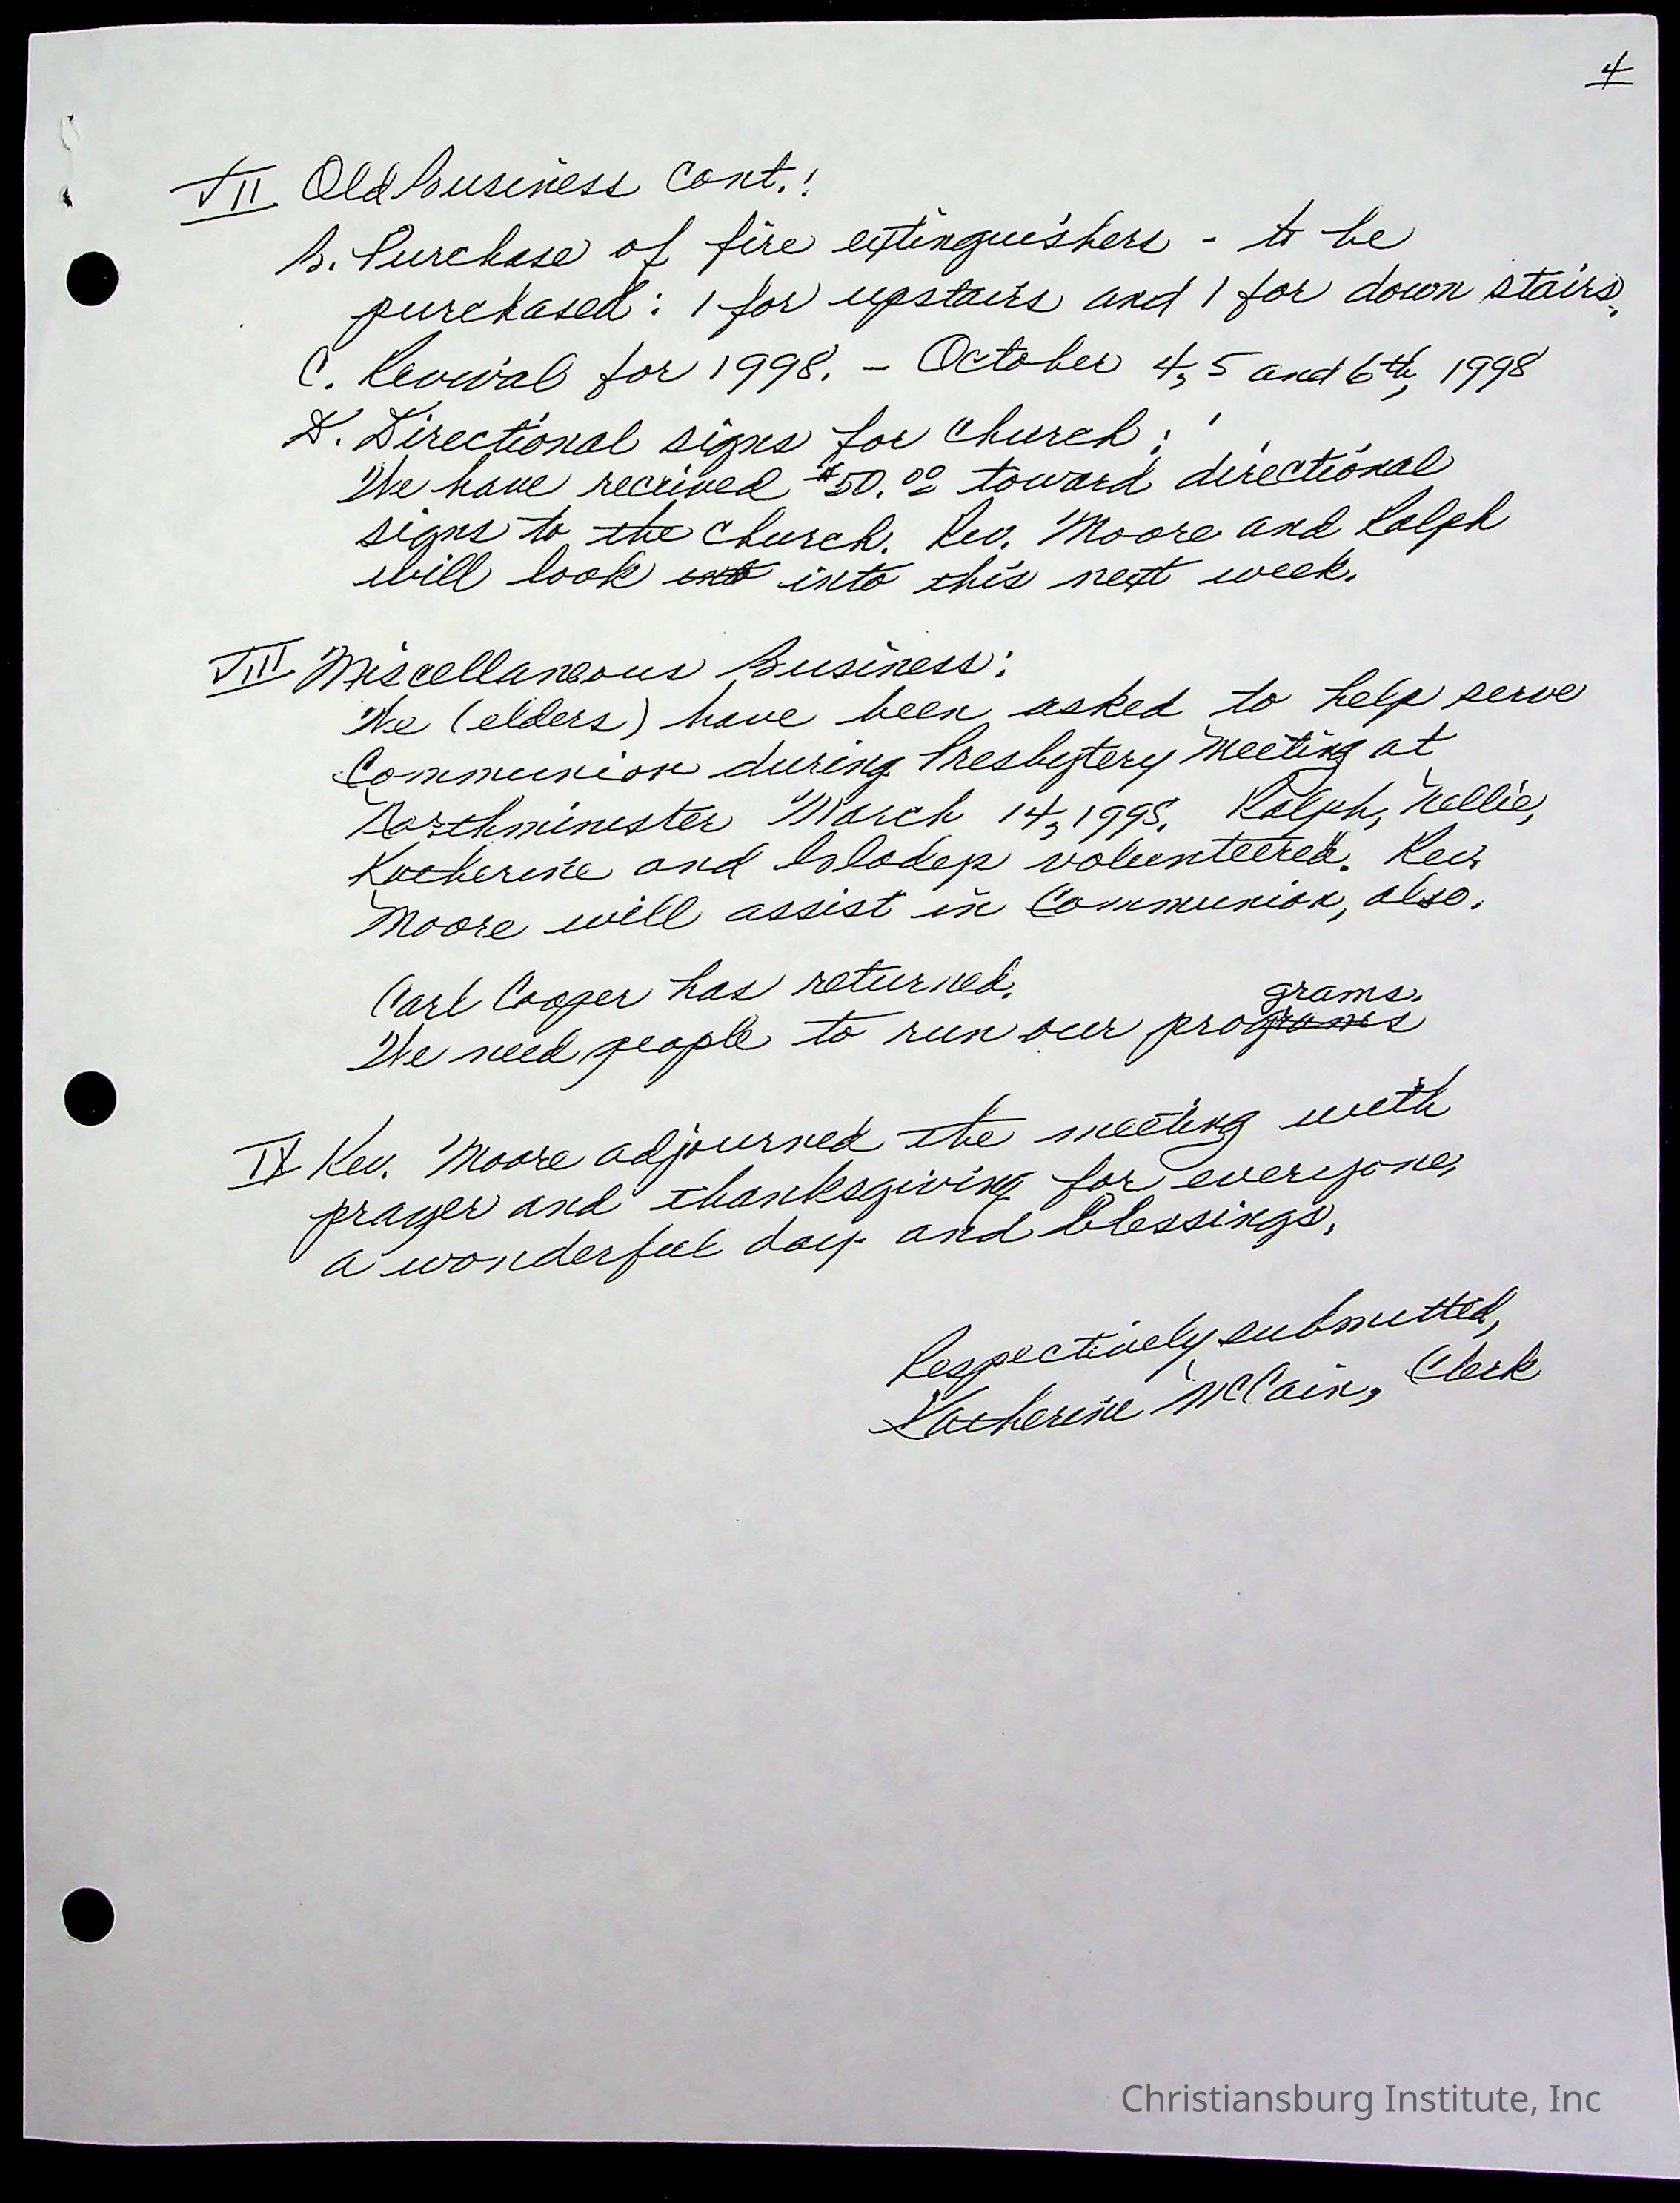 4
VII Old Business cont.:
B. Purchase of fire extinguishers - to be
purchased: 1 for upstairs and 1 for down stairs.
C. Revival for 1998. - October 4, 5 and 6th, 1998
D. Directional signs for church:
We have received $50.00 toward directional
signs to the church. Rev. Moore and Ralph
will look into this next week.
VIII Miscellaneous Business:
We (elders) have been asked to help serve
Communion during Presbytery Meeting at
Northminister March 14, 1998. Ralph, Nellie,
Katherine and volunteered. Rev.
Moore will assist in Communion, also.
Carl Cooper has returned.
grams.
We need people to run our programs
IX Rev. Moore adjourned the meeting with
prayer and thanksgiving for everyone,
a wonderful day and blessings.
Respectively submitted,
Katherine McCain, Clerk
Christiansburg Institute, Inc